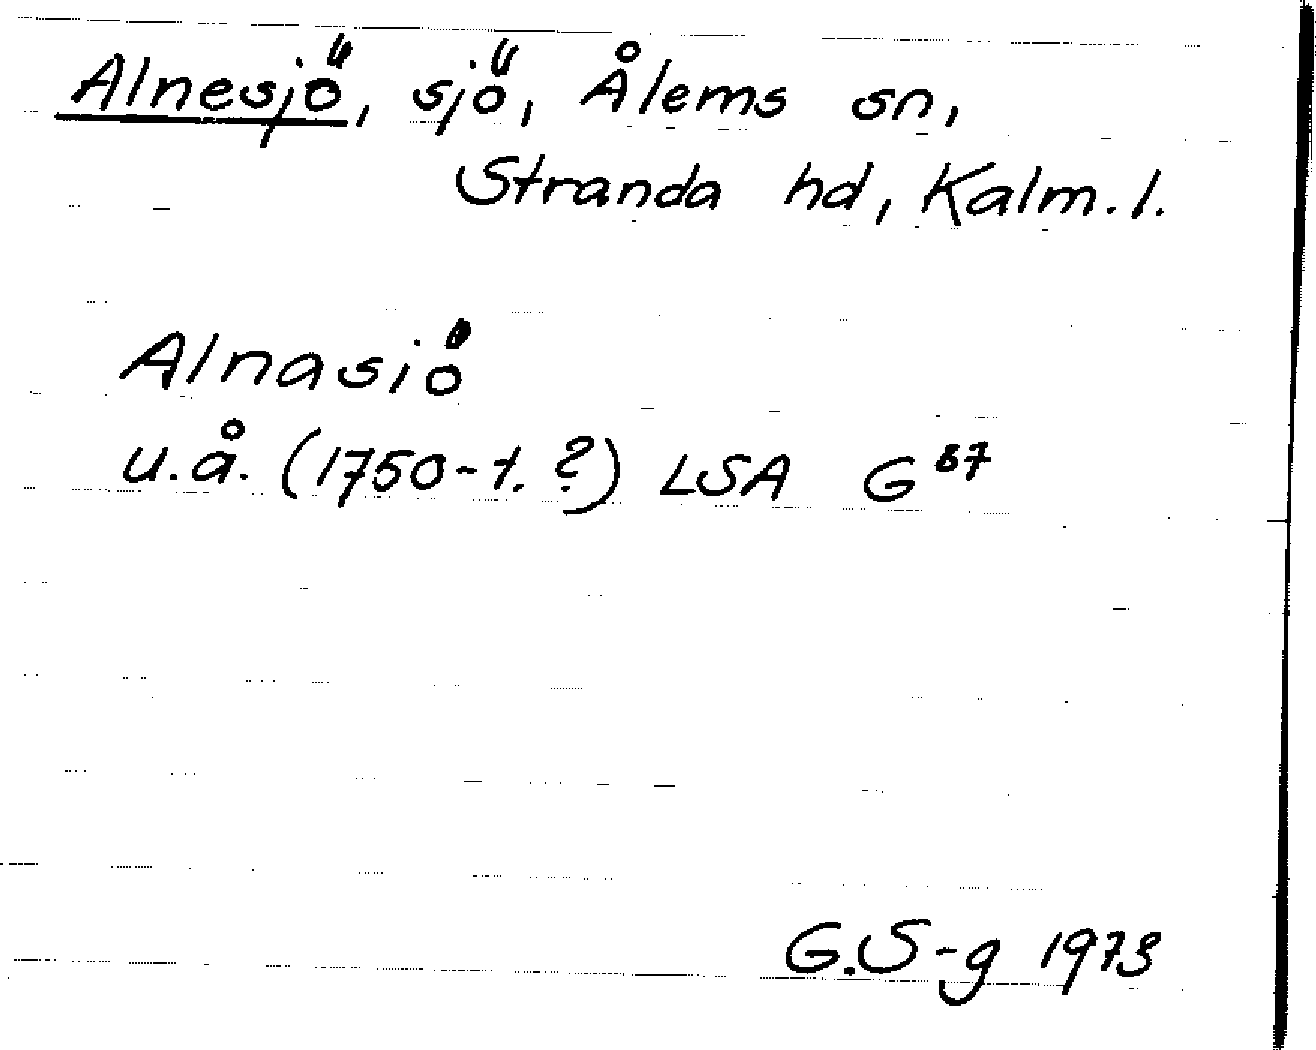 Alnesjö, sjö, Ålems sn,
Stranda hd, Kalm. l.
Alnasiö
u.å. (1750-t. ?) LSA G 57
G.S-g 1973